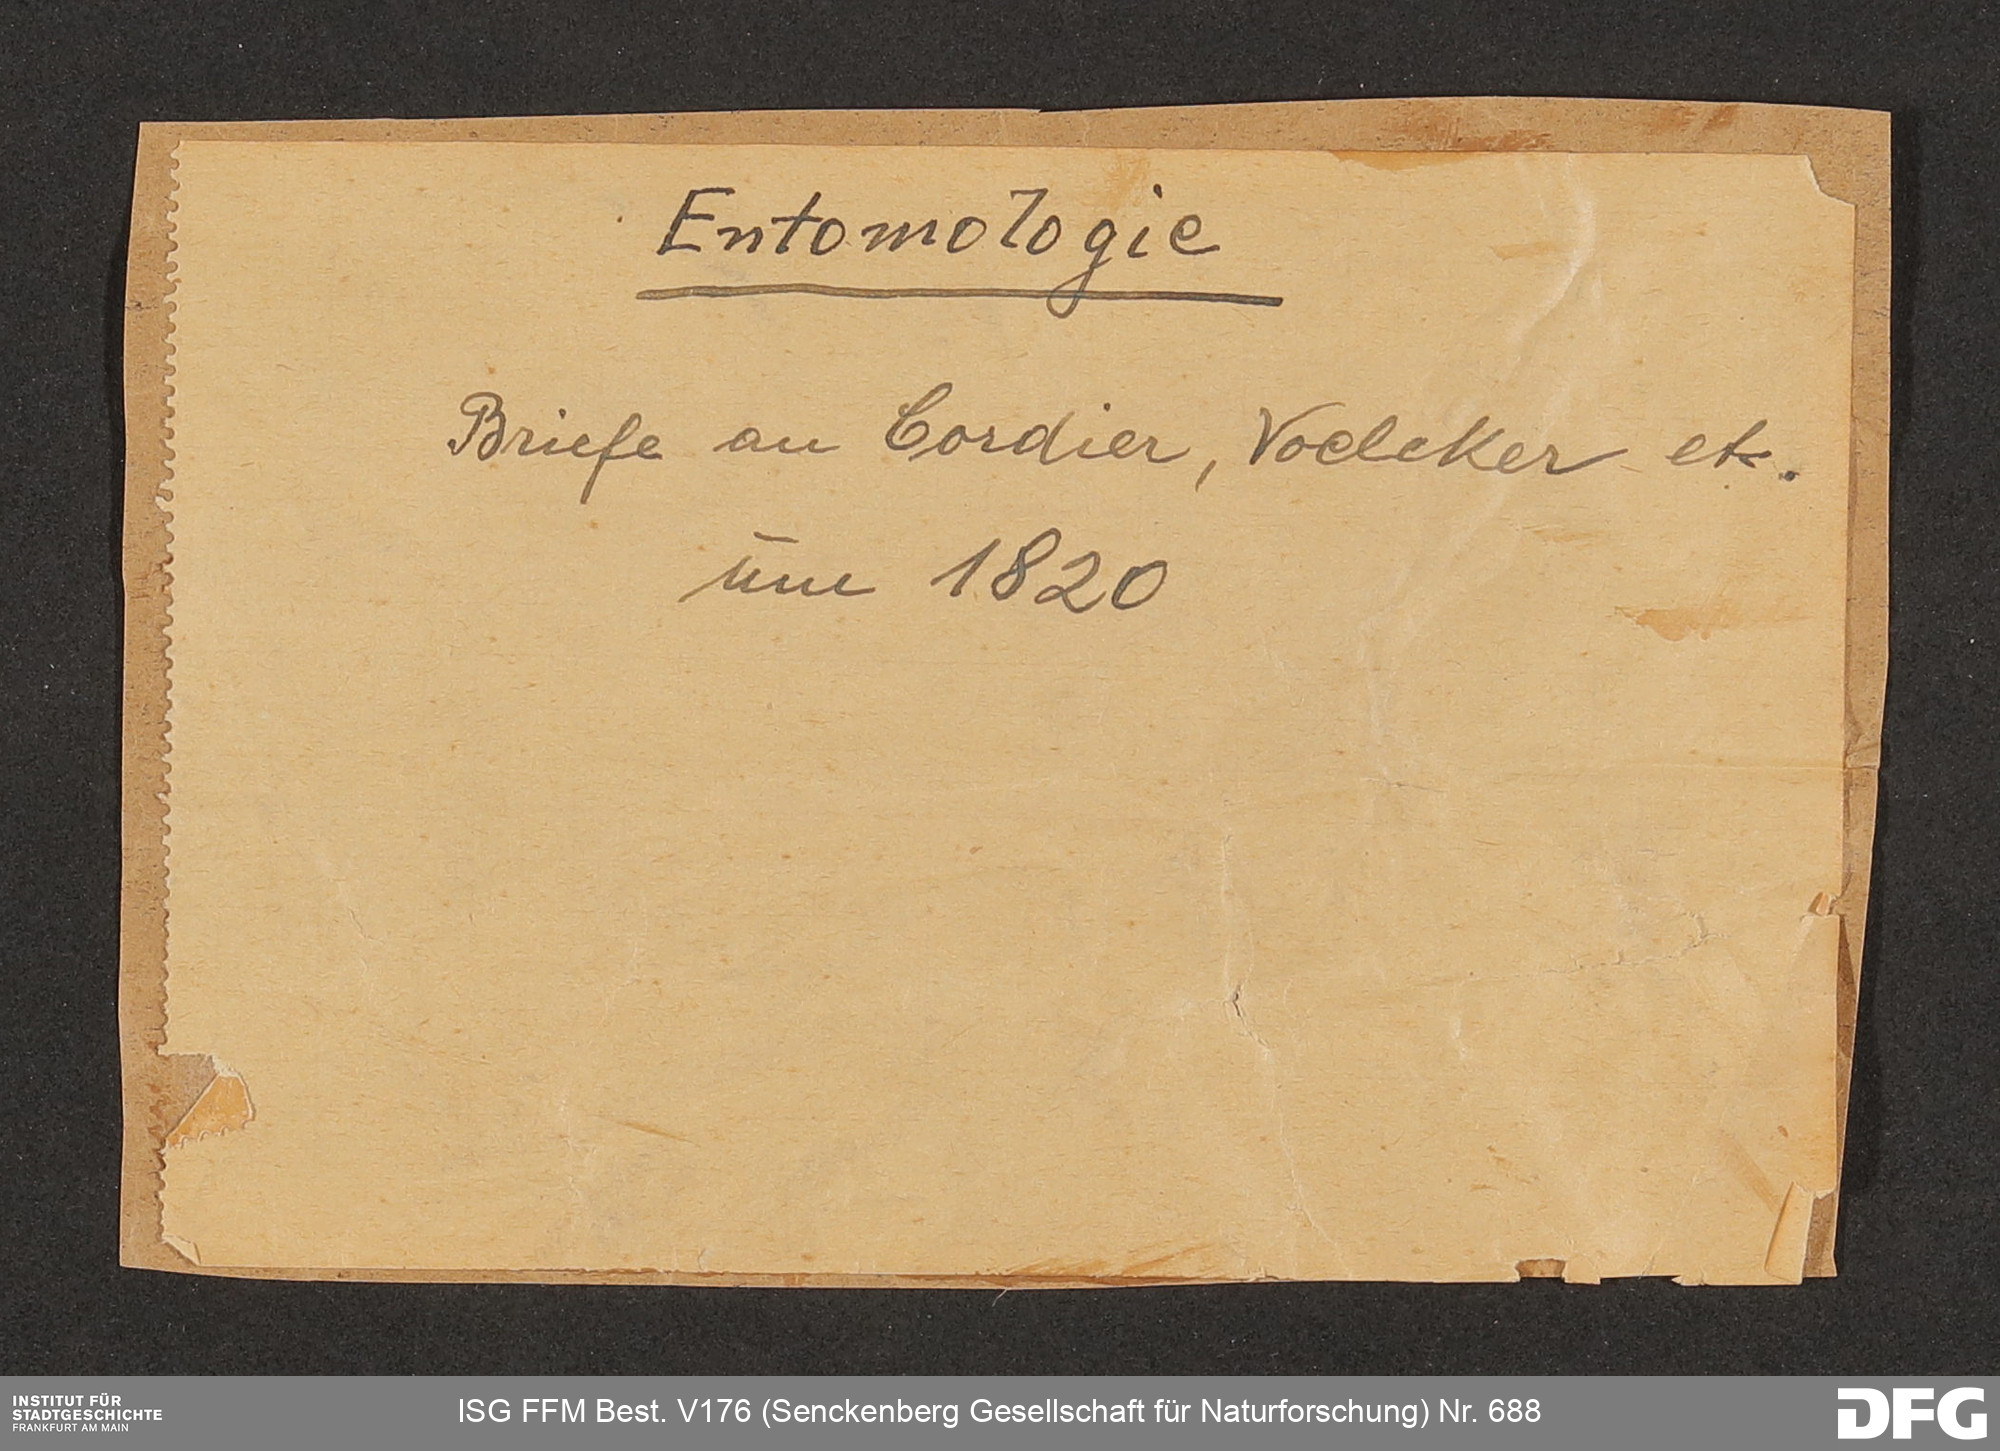 Entomologie
Briefe an Cordier, Voelcker etc.
um 1820
INSTITUT FÜR
STADTGESCHICHTE
FRANKFURT AM MAIN
ISG FFM Best. V176 (Senckenberg Gesellschaft für Naturforschung) Nr. 688
DFG